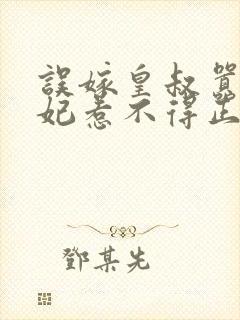 誤嫁皇叔
妃惹不得
鄧某先